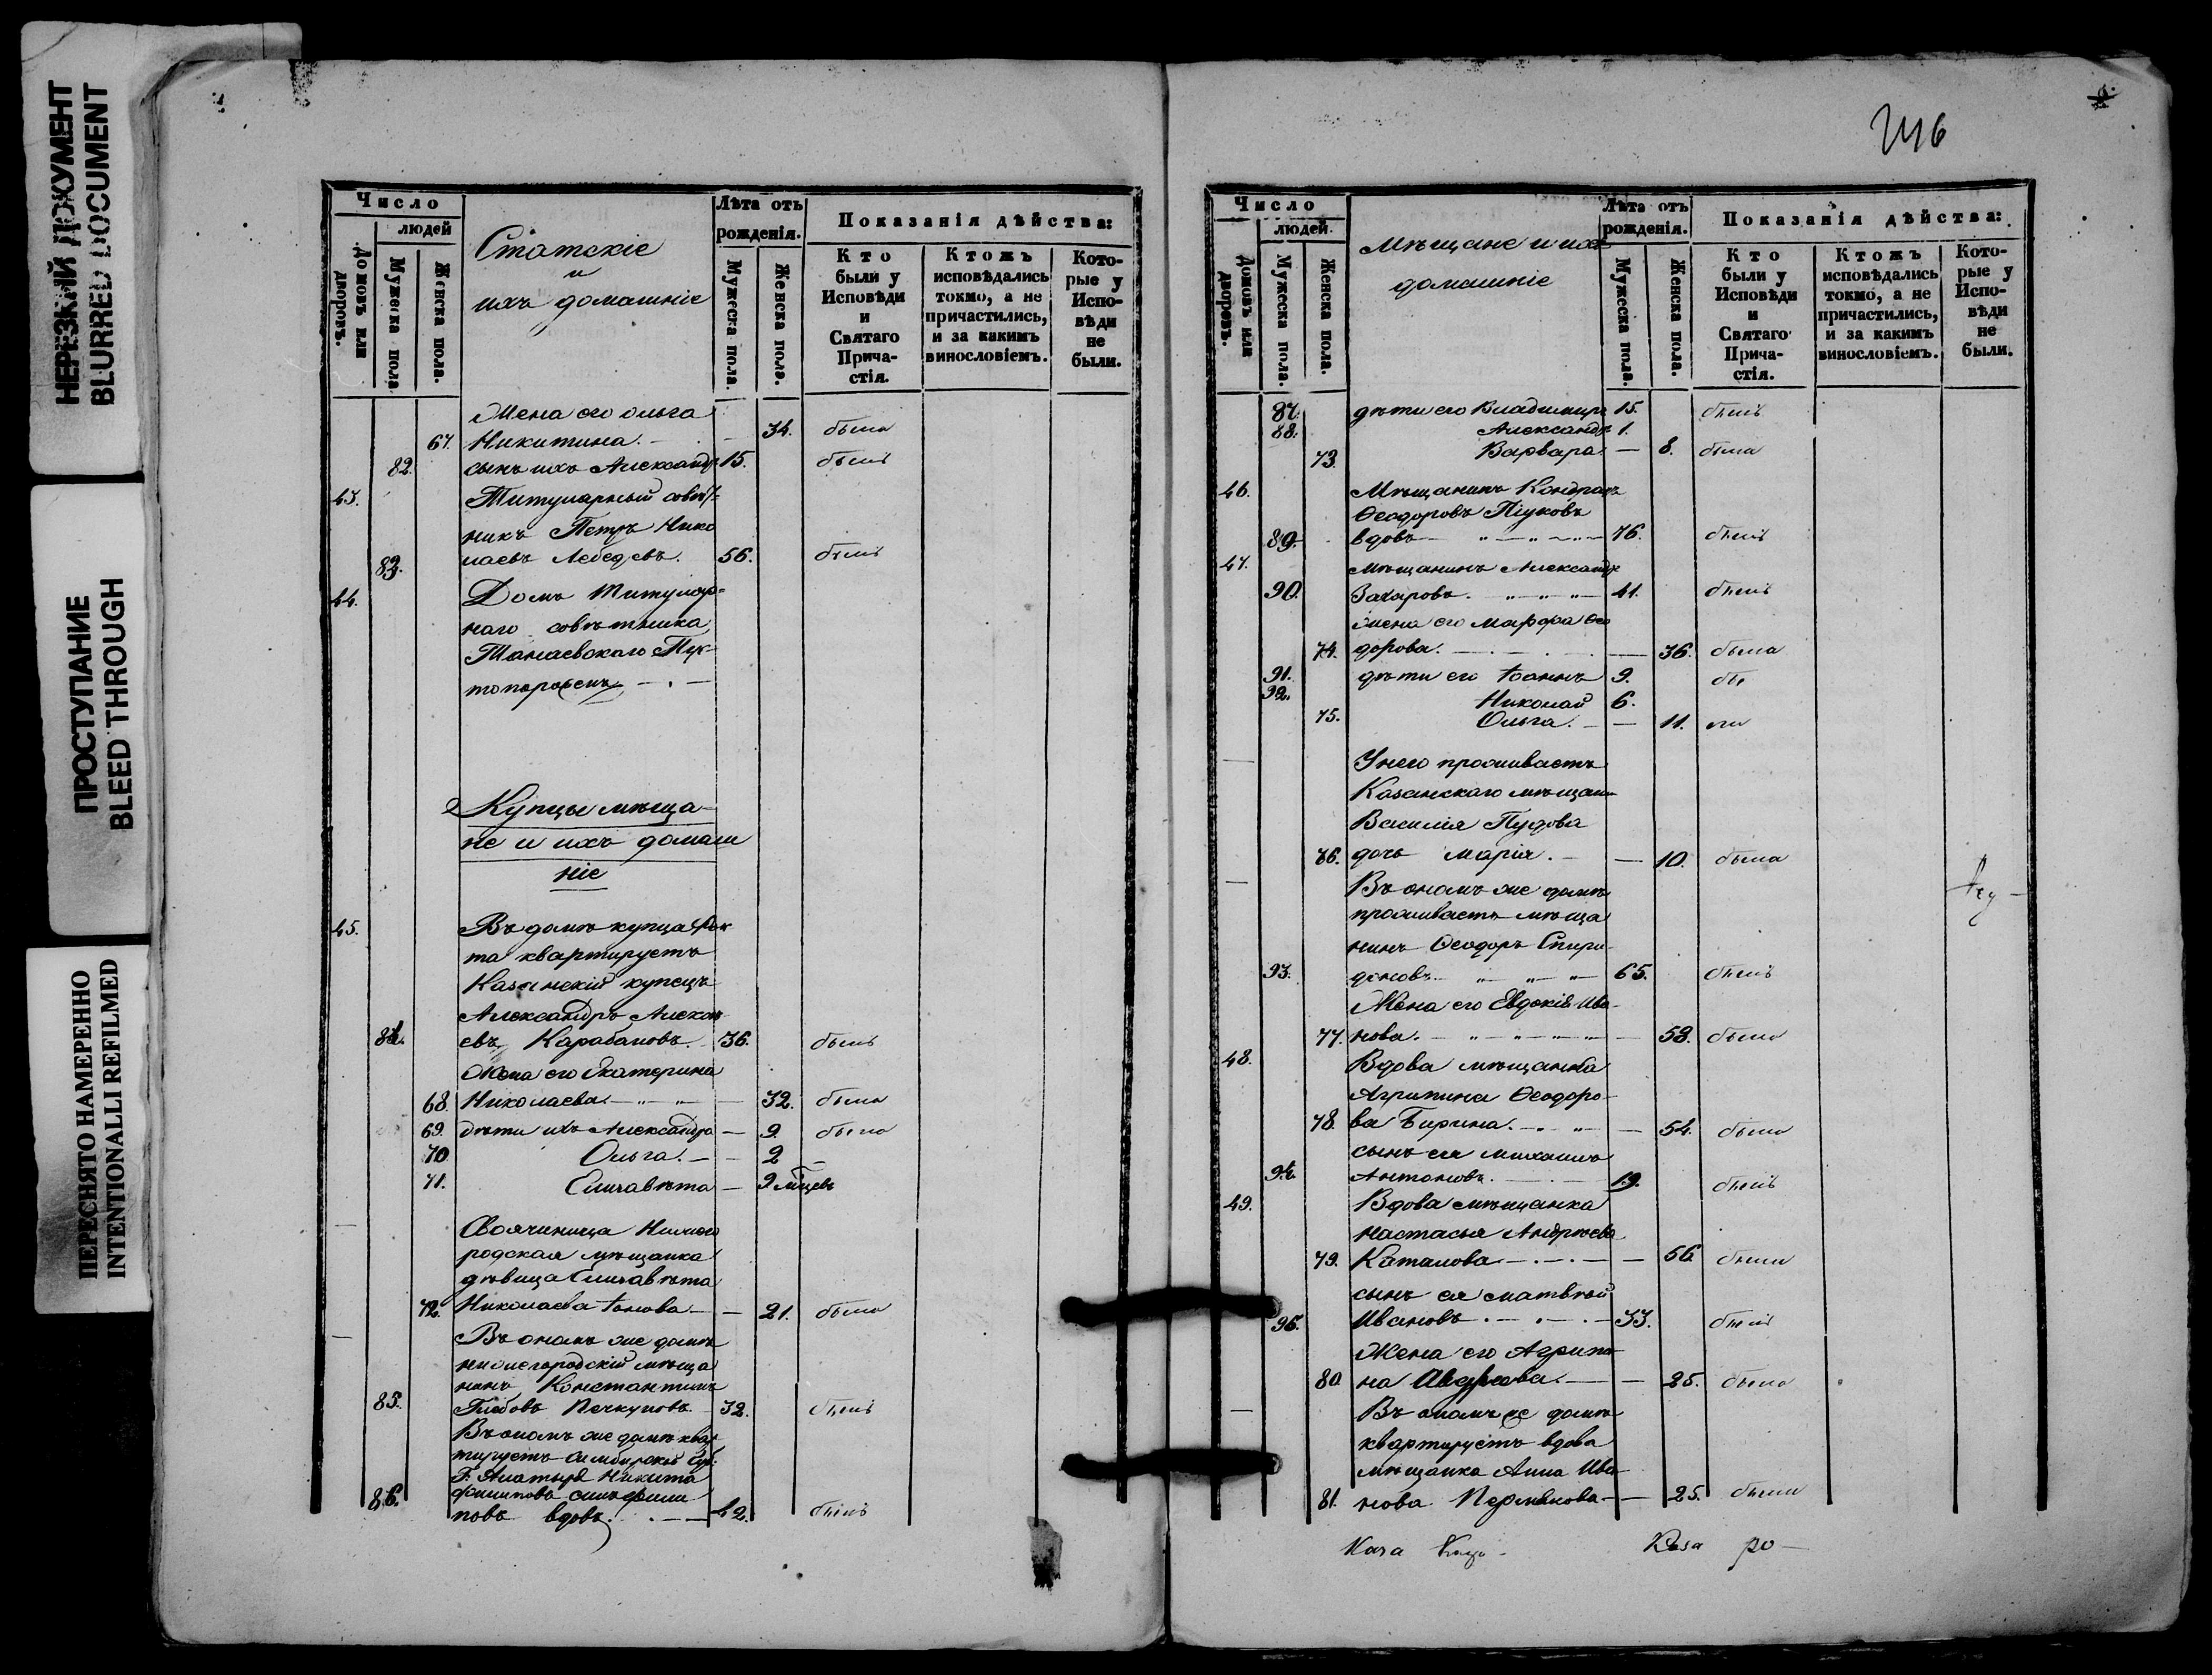 НЕРЕЗКИЙ ДОКУМЕНТ
BLURRED DOCUMENT
ПРОСТУПАНИЕ
BLEED THROUGH
ПЕРЕСНЯТО НАМЕРЕННО
INTENTIONALLI REFILMED
Число
людей
Домовъ или дворовъ.
Мужеска пола
Женска пола.
Статскіе
и
ихъ домашніе
Лѣта отъ
рожденія.
Мужеска пола.
Женска пола.
Показанія дѣйства:
Кто
были у
Исповѣди
и
Святаго
Прича-
стія.
Ктожъ
исповѣдались
токмо, а не
причастились,
и за какимъ
винословіемъ.
Кото-
рые у
Испо-
вѣди
не
были.
Жена его Ольга
67. Никитина. 34. была
82. сынъ ихъ Александръ 15. былъ
43. Титулярный совѣт-
никъ Петръ Нико
83. лаевъ Лебедевъ. 56. былъ
44. Домъ Титуляр-
наго совѣтника
топоровсмъ
Купцы мѣща-
не и ихъ домаш
ніе
45. Въ домѣ купца
та квартируетъ
Казанскій купецъ
Александръ Алексѣ-
84. евъ Карабановъ. 36. былъ
Жена его Екатерина
68. Николаева. 32. была
69. дѣти ихъ Александра 9. была
70 Ольга. 2
71. Елизавета 9 мѣцевъ
Своячиница Нижего
родская мѣщанка
дѣвица Елизавета
72. Николаева 21. была
Въ ономъ же домѣ
нижегородскій мѣща
нинъ Константинъ
85. Глебовъ 32. былъ
Въ ономъ же домѣ квар
тируетъ Симбирской Губ:
Г. Алатыря Никита
Филиповъ сынъ Фили
86. повъ вдовъ. 42. былъ
246
Число
людей.
Домовъ или дворовъ.
Мужеска пола.
Женска пола.
Мѣщане и ихъ
домашніе
Лѣта отъ
рожденія.
Мужеска пола.
Женска пола.
Показанія дѣйства:
Кто
были у
Исповѣди
и
Святаго
Прича-
стія.
Ктожъ
исповѣдались
токмо, а не
причастились,
и за какимъ
винословіемъ.
Кото-
рые у
Испо-
вѣди
не
были.
87. дѣти его Владимиръ 15. былъ
88. Александръ 1.
73. Варвара. 8. была
46. Мѣщанинъ Кондратъ
Ѳеодоровъ
89. вдовъ 76. былъ
47. Мѣщанинъ Александръ
90. Захаровъ. 41. былъ
жена его Марфа Ѳео
74. дорова. 36. была
91. дѣти его Іоаннъ 9. бы
92. Николай 6.
75. Ольга. 11. ли
У него проживаетъ
Казанскаго мѣщан
Василія Пудова
76. дочь Марія. 10. была
Въ ономъ же домѣ
проживаетъ мѣща
нинъ Ѳеодоръ Спири-
93. доновъ 65. былъ
Жена его Евдокія Ива-
77. нова. 58. была
48. Вдова мѣщанка
Агрипина Ѳеодоро-
78. ва Бирина. 54. была
сынъ ея Михаилъ
94. Антоновъ. 19. былъ
49. Вдова мѣщанка
Настасья Андреева
79. Каталова 56 была
сынъ ея Матвѣй
95. Ивановъ 33. былъ
Жена его Агрипи-
80. на 25. была
Въ ономъ же домѣ
квартируетъ вдова
мѣщанка Анна Ива-
81. нова Пермякова 25. была